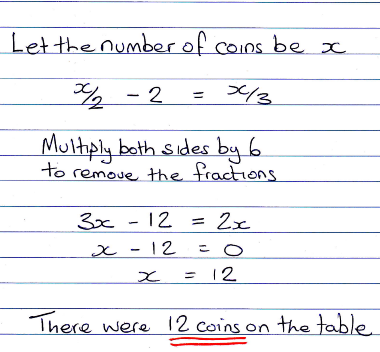 Let the number of coins be x
x/2 - 2 = x/3
Multiply both sides by 6
to remove the fractions
3x - 12 = 2x
x - 12 = 0
x = 12
There were 12 coins on the table